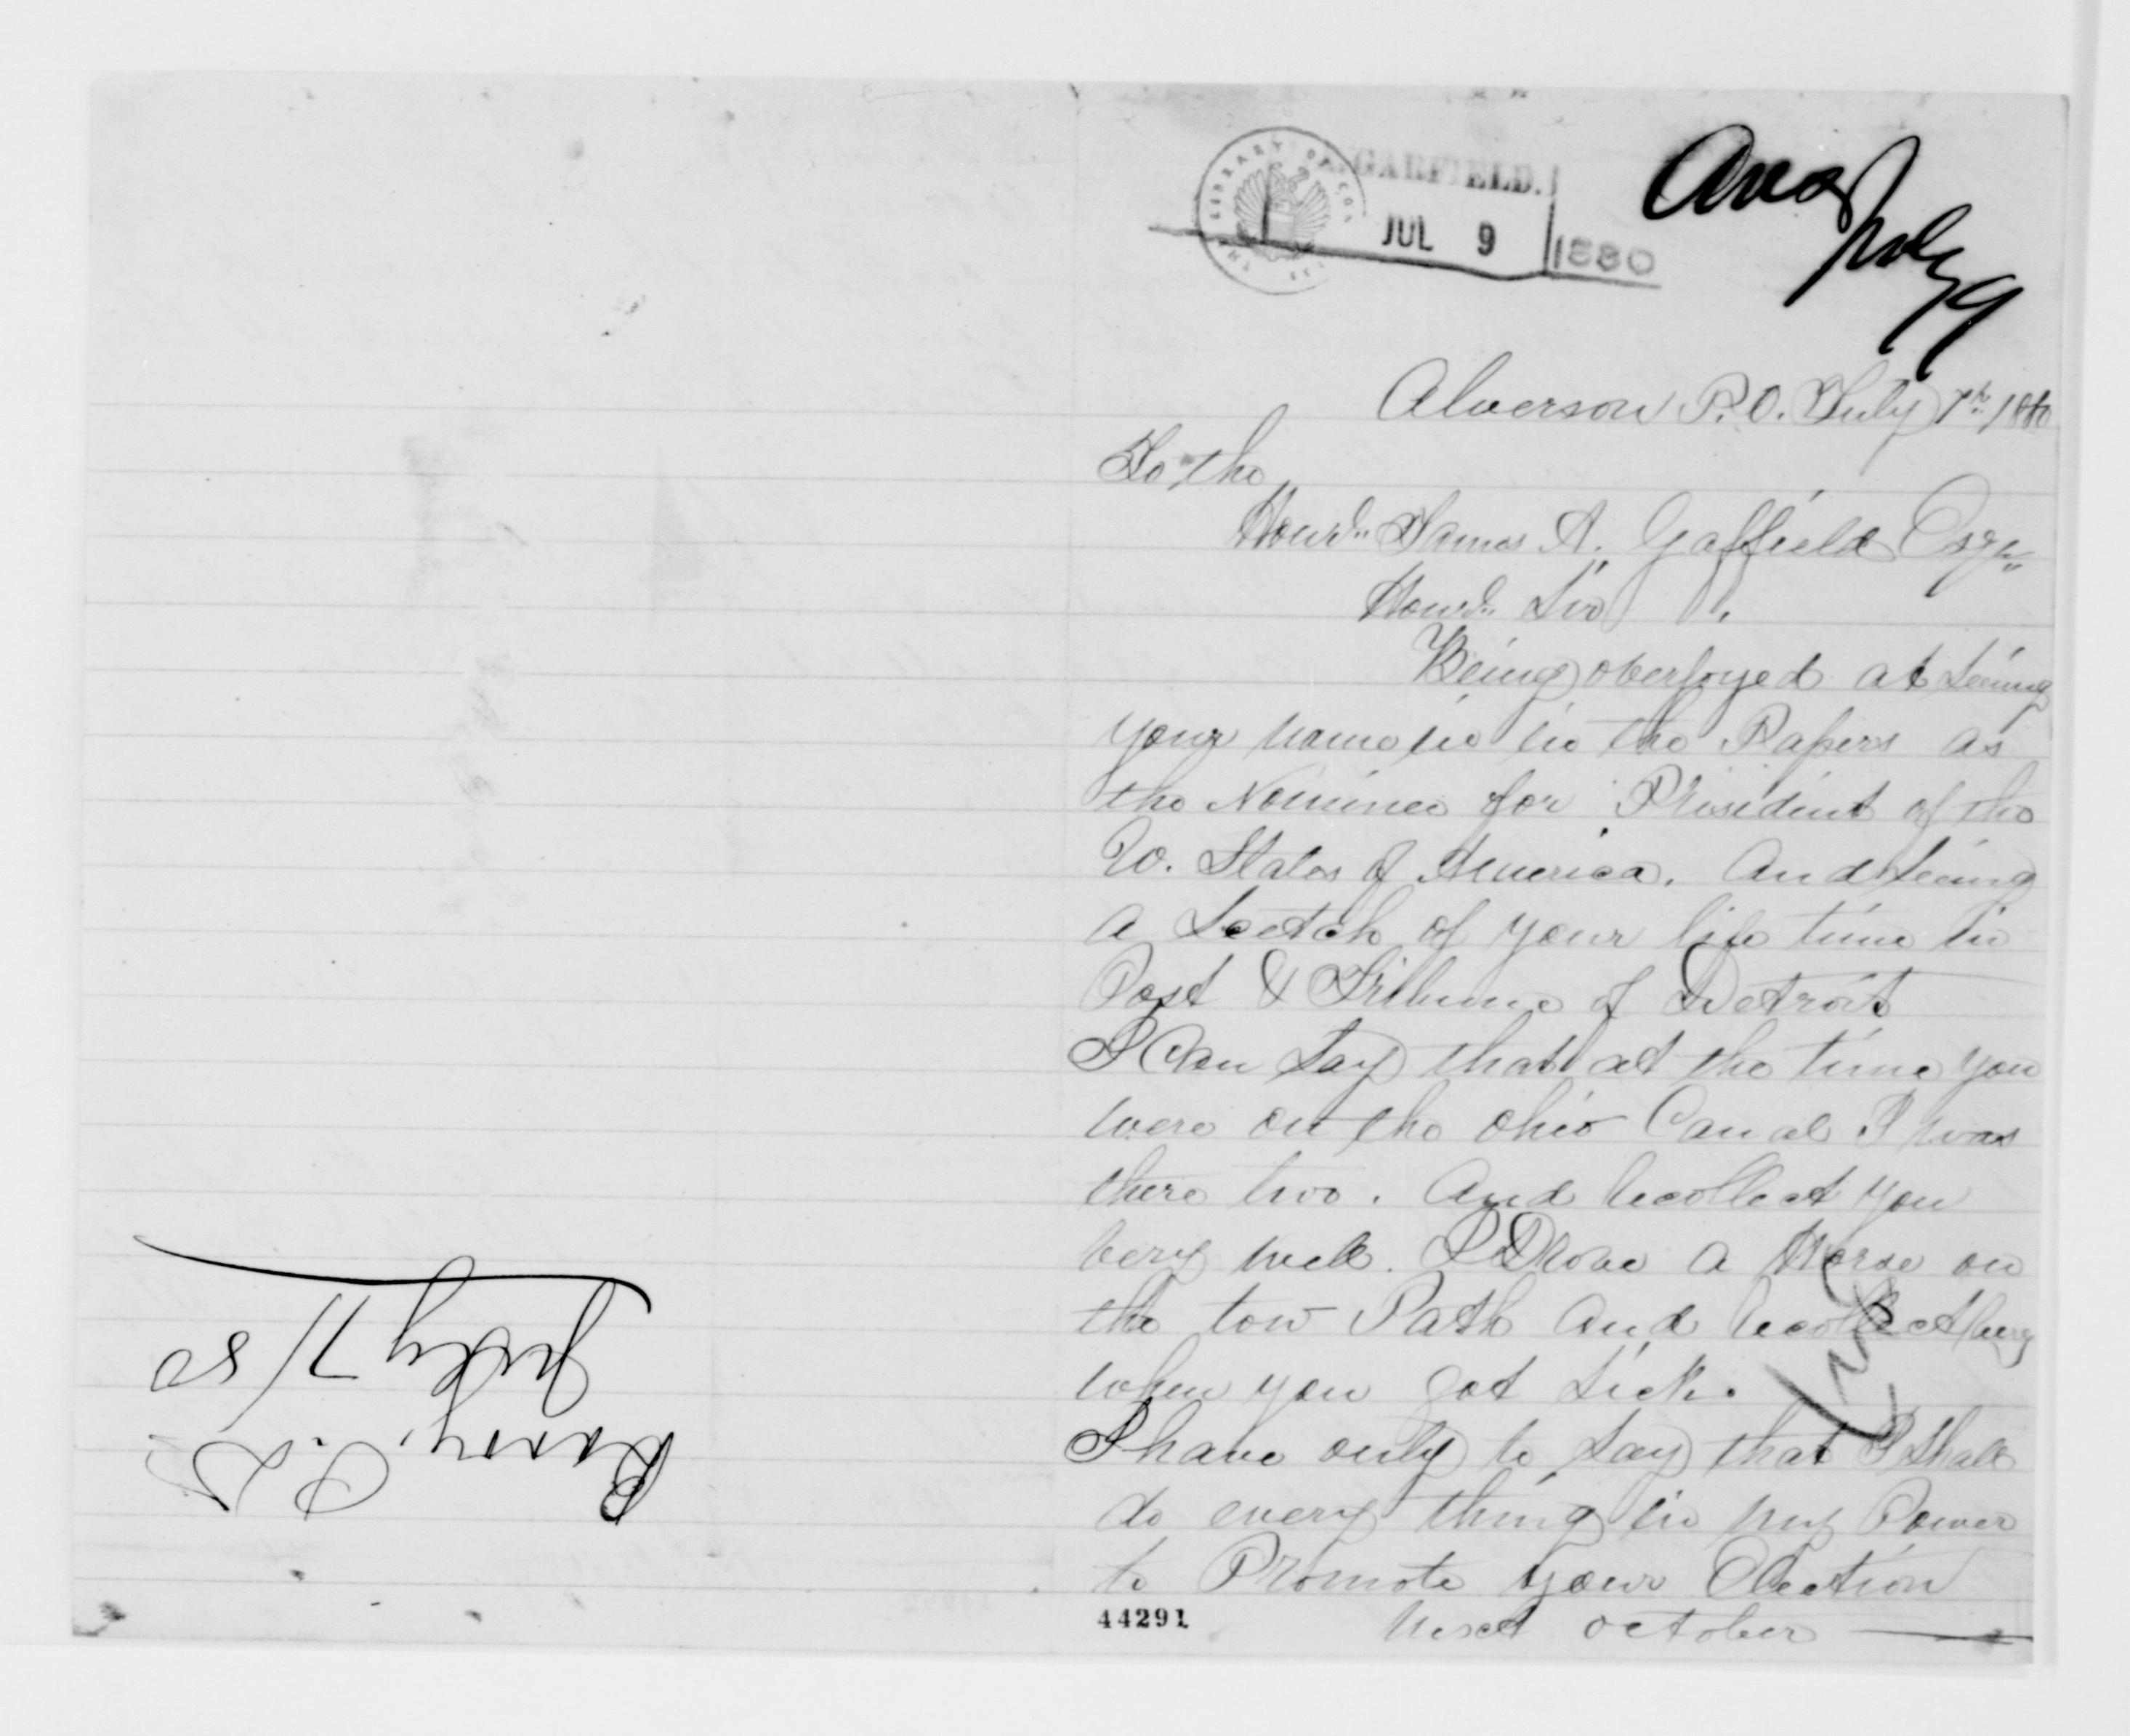 GARFIELD.
JUL 9 1880
LIBRARY OF CON
THE
Ans
July 9
Alverson P.O. July 7th 1880
To the
Hourl. James A. Gaffield Esqr
Hourl. Sir
Being overjoyed at Seeing
your name in in the Papers as
the Nominee for President of the
U. States of America. And Seeing
a Scetch of your life time in
Post & Tribune of Detroit
I Can Say that at the time you
were on the Ohio Canal I was
there two. And recollect you
very well. I Drove a Horse on
the tow Path and recollect
when you got Sick.
I have only to Say that I Shall
do every thing in my Power
to Promote your Election
next October
44291
July 7/80